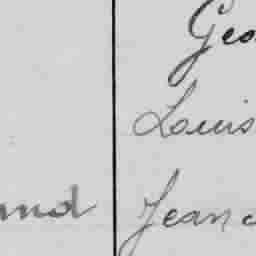 Geo
Louis
and Jean